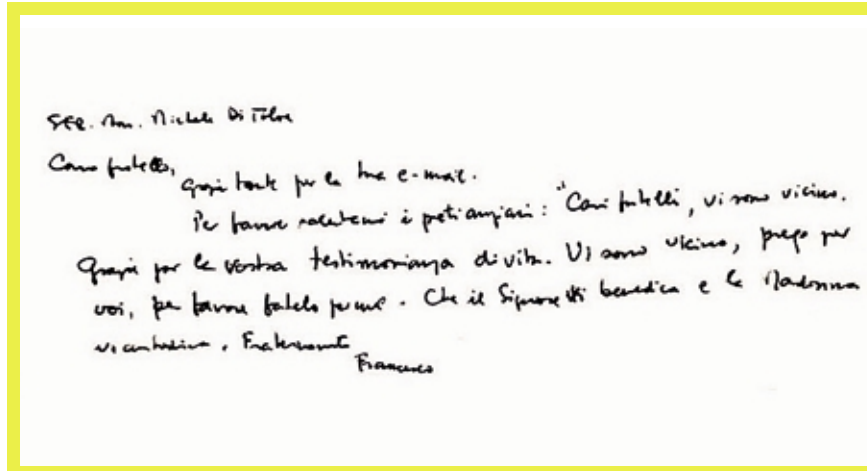 S.E.R. Mons. Michele Di Tolve
Caro fratello,
grazie tante per la tua e-mail.
Per favore salutami i preti anziani: "Cari fratelli, vi sono vicino.
Grazie per la vostra testimonianza di vita. Vi sono vicino, prego per
voi, per favore fatelo per me. Che il Signore vi benedica e la Madonna
vi custodisca. Fraternamente
Francesco